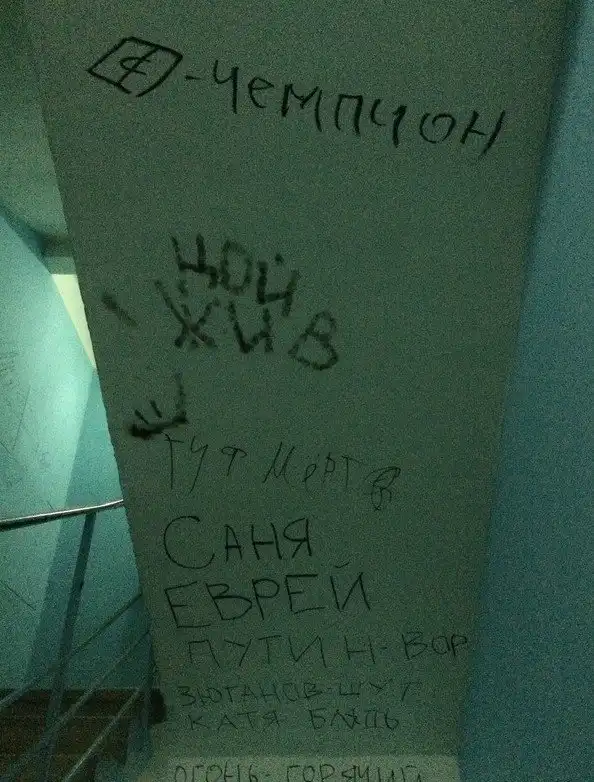 - ЧЕМПИОН
ЦОЙ
ЖИВ
ТУТ МЁРТВ
САНЯ
ЕВРЕЙ
ПУТИН - ВОР
ЗЮГАНОВ - ШУТ
КАТЯ БЛЯДЬ
ОГОНЬ - ГОРЯЧИЙ